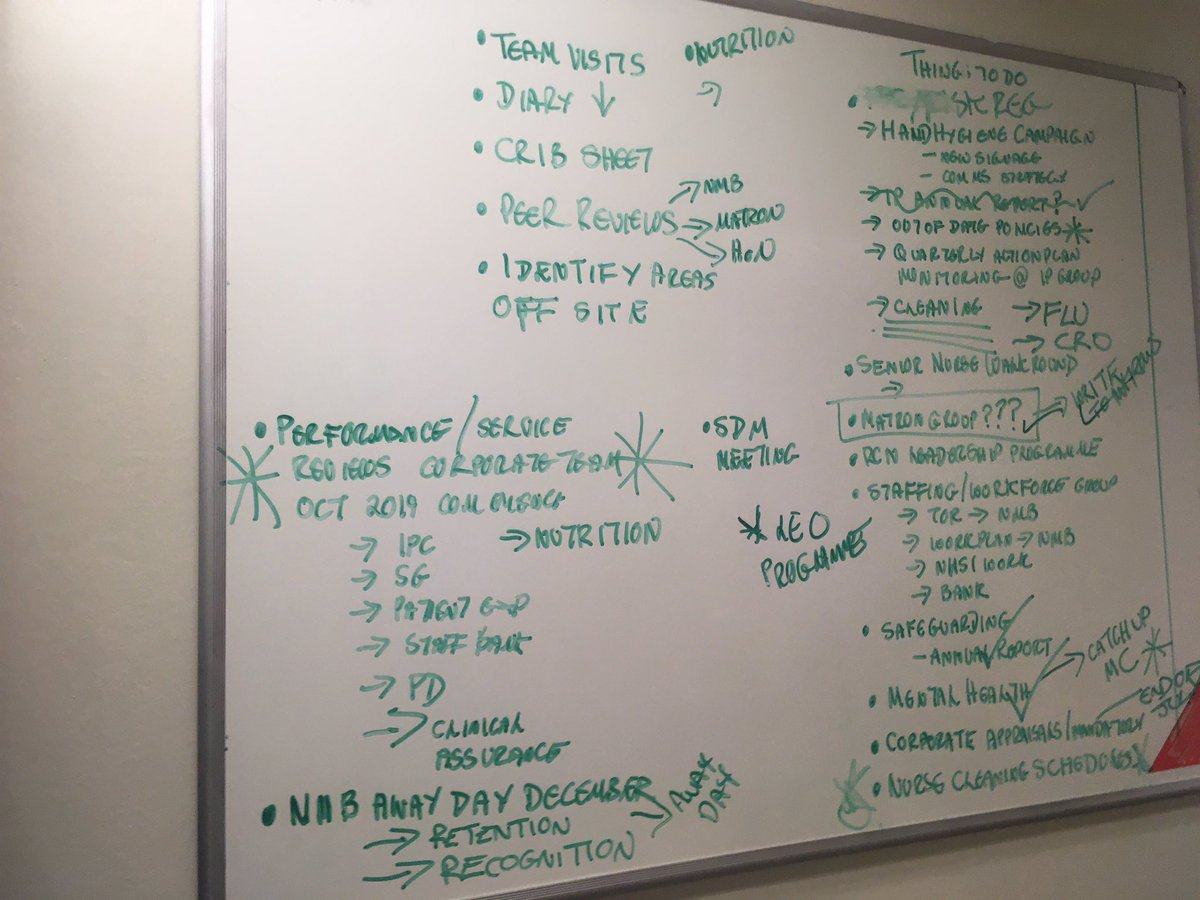 • TEAM VISITS
• DIARY ↓
• CRIB SHEET
• PEER REVIEWS
→ NMB
→ MATRON
→ HoN
• IDENTIFY AREAS
OFF SITE
• NUTRITION
→
• PERFORMANCE / SERVICE
REVIEWS CORPORATE TEAM
OCT 2019 COMMENCE
→ IPC
→ SG
→ PATIENT EXP
→ STAFF BANK
→ PD
→ CLINICAL
ASSURANCE
→ NUTRITION
• NMB AWAY DAY DECEMBER
→ RETENTION
→ RECOGNITION
→ AWAY
DAY
• SDM
MEETING
* LEO
PROGRAMME
THINGS TO DO
• REG
→ HAND HYGIENE CAMPAIGN
- NEW SIGNAGE
- COMMS STRATEGY
→ ANNUAL REPORT? ✓
→ OUT OF DATE POLICIES *
→ QUARTERLY ACTION PLAN
MONITORING @ IP GROUP
→ CLEANING
→ FLU
→ CRO
• SENIOR NURSE WALKROUND
→
• MATRON GROUP ???
→ WRITE
• RCN LEADERSHIP PROGRAMME
• STAFFING / WORKFORCE GROUP
→ TOR → NMB
→ WORKPLAN → NMB
→ NHSI WORK
→ BANK
• SAFEGUARDING
- ANNUAL REPORT
• MENTAL HEALTH
→ CATCH UP
MC *
• CORPORATE APPRAISALS / MANDATORY
END OF
• NURSE CLEANING SCHEDULES